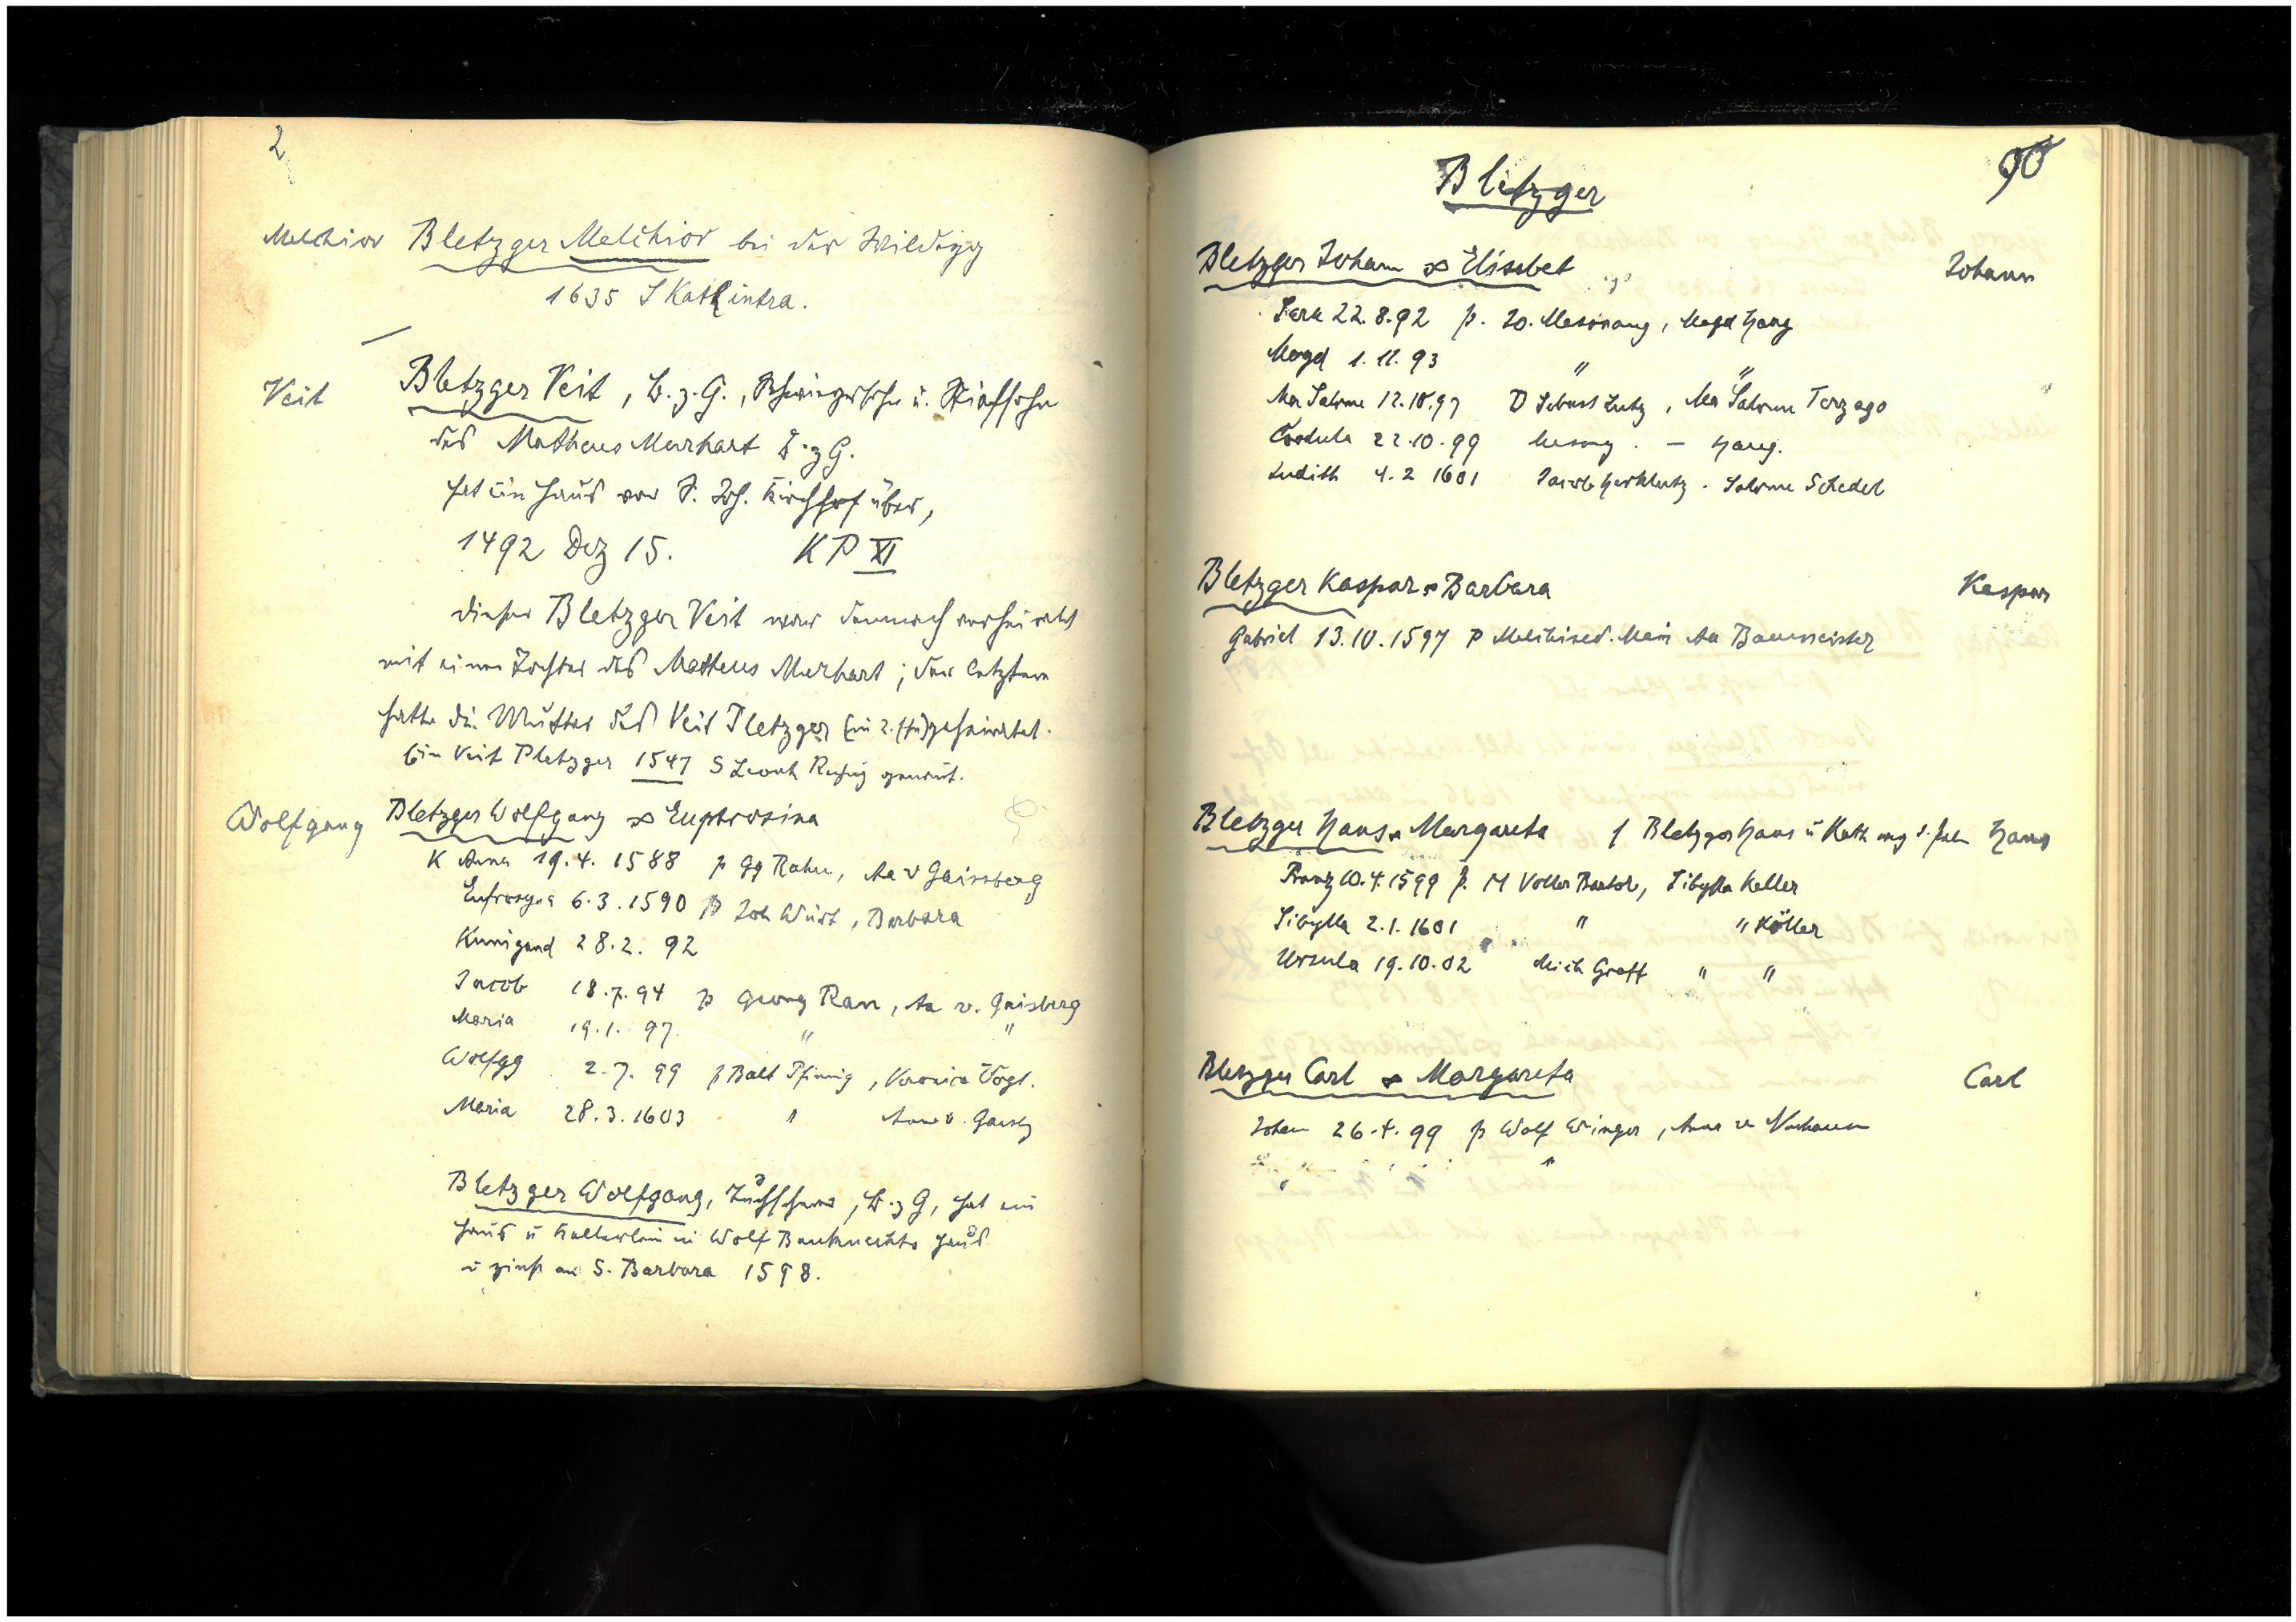 2
Melchior Bletzger Melchior bei der Wildegg
1635 S Kath intra.
Veit Bletzger Veit, B. z. G., Schwiegersohn u. Stiefsohn
des Matheus Murhart B. z G.
hat ein Haus vor S. Joh. Kirchhof über,
1492 Dez 15. KP XI
dieser Bletzger Veit war demnach verheiratet
mit einer Tochter des Matheus Murhart; der letztere
hatte die Mutter des Veit Pletzger (in 2. Ehe) geheiratet.
Ein Veit Pletzger 1547 S Leonh genannt.
Wolfgang Bletzger Wolfgang ∞ Euphrosina
K Anna 19.4.1588 p Gg Rahn, Aa v Gaissberg
Eufrosyna 6.3.1590 p Joh Würt, Barbara
Kunigund 28.2. 92
Jacob 18.7.94 p Georg Ran, Aa v. Gaisberg
Maria 19.1. 97. " "
Wolfgg 2.7. 99 p Balt Pfinnig, Veronica Vogl.
Maria 28.3.1603 " Anna v. Gaisbg
Bletzger Wolfgang, Tuchscherer, B. z G, hat ein
Haus u in Wolf Bauknechts Haus
u zinst an S. Barbara 1598.
90
Bletzger
Bletzger Johann ∞ Elisabet Johann
Sara 22.8.92 p. Jo. Mesnang, Magd Haug
Magd 1.11.93 " "
Ma Salome 12.10.97 D Sebast Lutz, Ma Salome Terzago
Cordula 22.10.99 Mesnang. – Haug.
Judith 4.2 1601 Jacob Herklutz. Salome Schedel
Bletzger Kaspar ∞ Barbara Kaspar
Gabriel 13.10.1597 p Melchised. Mair Aa Baumeister
Bletzger Hans ∞ Margareta f Bletzger Hans u Kath Hans
Franz 10.4.1599 p. M Voller Bartol, Sibylla Keller
Sibylla 2.1.1601 " " Köller
Ursula 19.10.02 Mich Graff " "
Bletzger Carl ∞ Margareta Carl
Johan 26.4.99 p Wolf Winger, Anna v